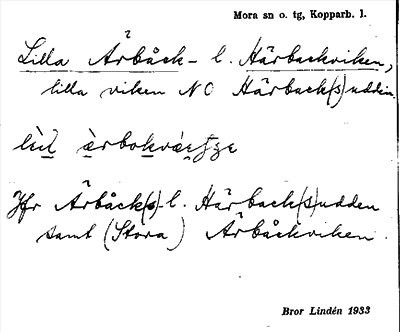 Mora sn o. tg, Kopparb. l.
Lilla Ärbåck- l. Härbackviken,
lilla viken NO Härback(s)udden.
Jfr Ärbåck(s)- l. Härback(s)udden
samt (Stora) Ärbåckviken.
Bror Lindén 1933